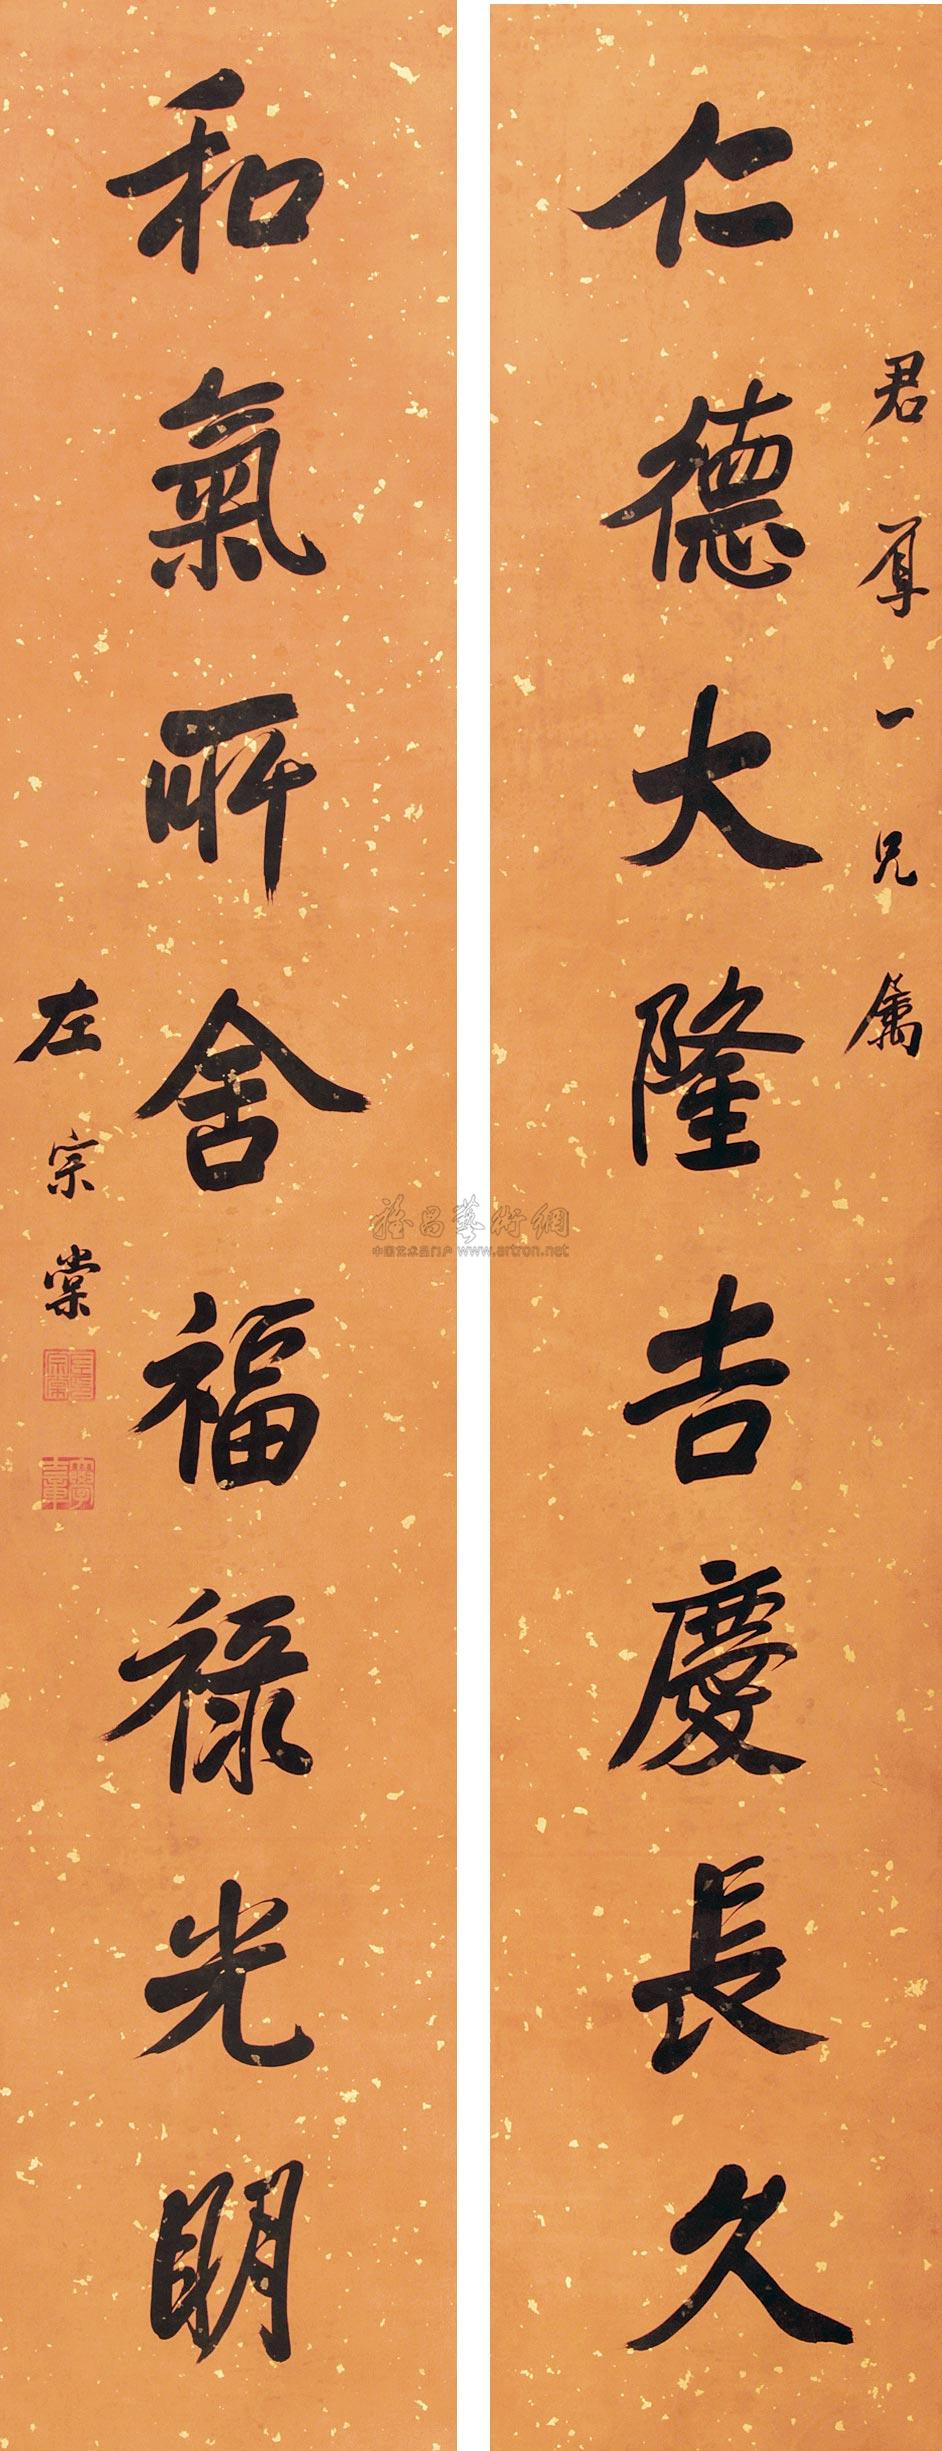 君尊一兄属
仁德大隆吉慶長久
和氣所舍福祿光明
左宗棠
雅昌藝術網
中国艺术品门户 www.artron.net